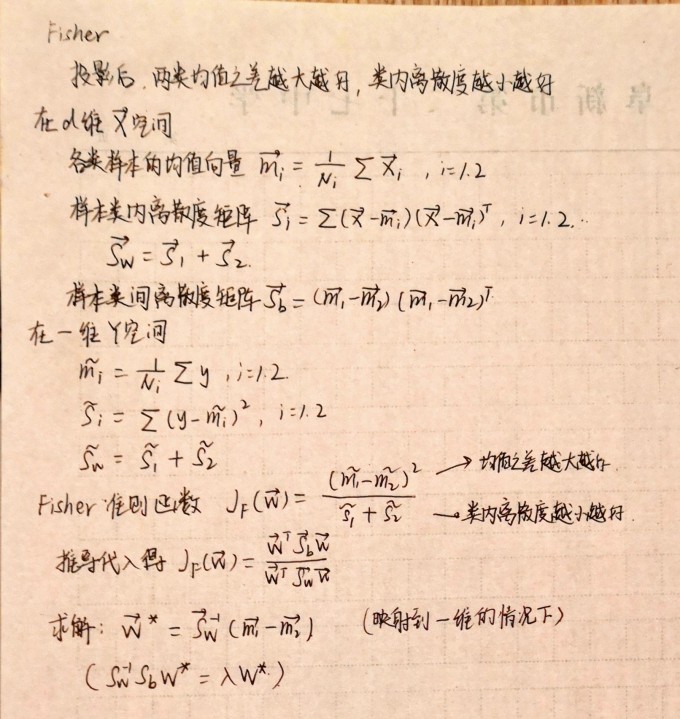 Fisher
投影后,两类均值之差越大越好,类内离散度越小越好
在d维 X⃗空间
各类样本的均值向量 m⃗ᵢ = 1/Nᵢ ∑ X⃗ᵢ , i=1.2
样本类内离散度矩阵 S⃗ᵢ = ∑(X⃗-m⃗ᵢ)(X⃗-m⃗ᵢ)ᵀ, i=1.2.
S⃗w = S⃗₁ + S⃗₂.
样本类间离散度矩阵 S⃗b = (m⃗₁-m⃗₂)(m⃗₁-m⃗₂)ᵀ
在一维Y空间
m̃ᵢ = 1/Nᵢ ∑ y , i=1.2.
S̃ᵢ = ∑ (y-m̃ᵢ)², i=1.2
S̃w = S̃₁ + S̃₂
Fisher 准则函数 J_F(w⃗) = (m̃₁-m̃₂)² / (S̃₁ + S̃₂) → 均值之差越大越好. → 类内离散度越小越好.
推导代入得 J_F(w⃗) = w⃗ᵀ S⃗b w⃗ / w⃗ᵀ S⃗w w⃗
求解: w⃗* = S⃗w⁻¹ (m⃗₁-m⃗₂) (映射到一维的情况下)
( Sw⁻¹ Sb w* = λ w* )